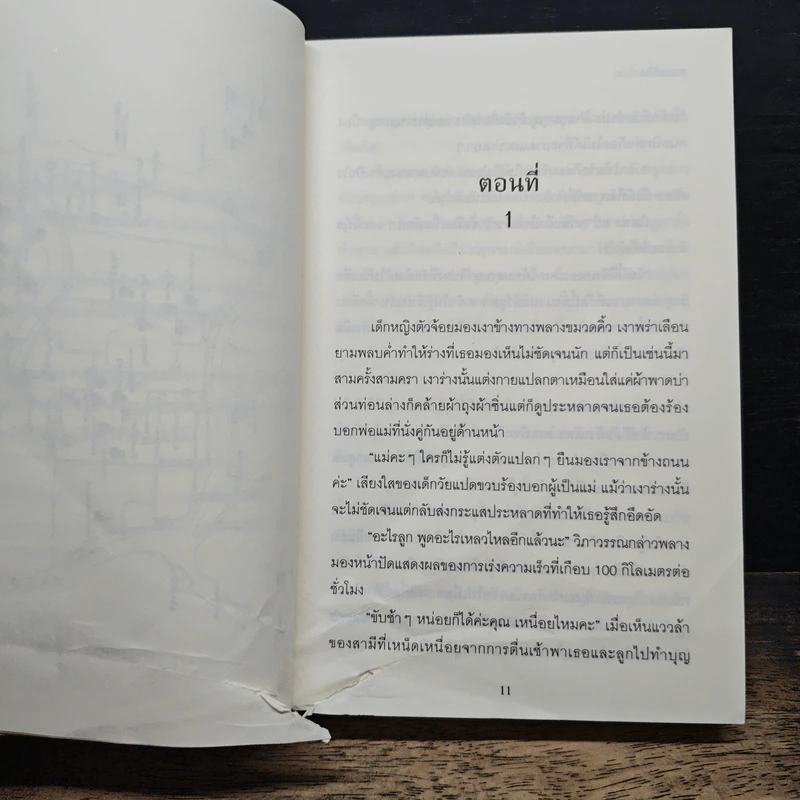 ตอนที่
1
เด็กหญิงตัวจ้อยมองเงาข้างทางพลางขมวดคิ้ว เงาพร่าเลือน
ยามพลบค่ำทำให้ร่างที่เธอมองเห็นไม่ชัดเจนนัก แต่ก็เป็นเช่นนี้มา
สามครั้งสามครา เงาร่างนั้นแต่งกายแปลกตาเหมือนใส่แค่ผ้าพาดบ่า
ส่วนท่อนล่างก็คล้ายผ้าถุงผ้าซิ่นแต่ก็ดูประหลาดจนเธอต้องร้อง
บอกพ่อแม่ที่นั่งคู่กันอยู่ด้านหน้า
“แม่คะๆ ใครก็ไม่รู้แต่งตัวแปลกๆ ยืนมองเราจากข้างถนน
ค่ะ” เสียงใสของเด็กวัยแปดขวบร้องบอกผู้เป็นแม่ แม้ว่าเงาร่างนั้น
จะไม่ชัดเจนแต่กลับส่งกระแสประหลาดที่ทำให้เธอรู้สึกอึดอัด
“อะไรลูก พูดอะไรเหลวไหลอีกแล้วนะ” วิภาวรรณกล่าวพลาง
มองหน้าปัดแสดงผลของการเร่งความเร็วที่เกือบ 100 กิโลเมตรต่อ
ชั่วโมง
“ขับช้าๆ หน่อยก็ได้ค่ะคุณ เหนื่อยไหมคะ” เมื่อเห็นแววล้า
ของสามีที่เหน็ดเหนื่อยจากการตื่นเช้าพาเธอและลูกไปทำบุญ
11